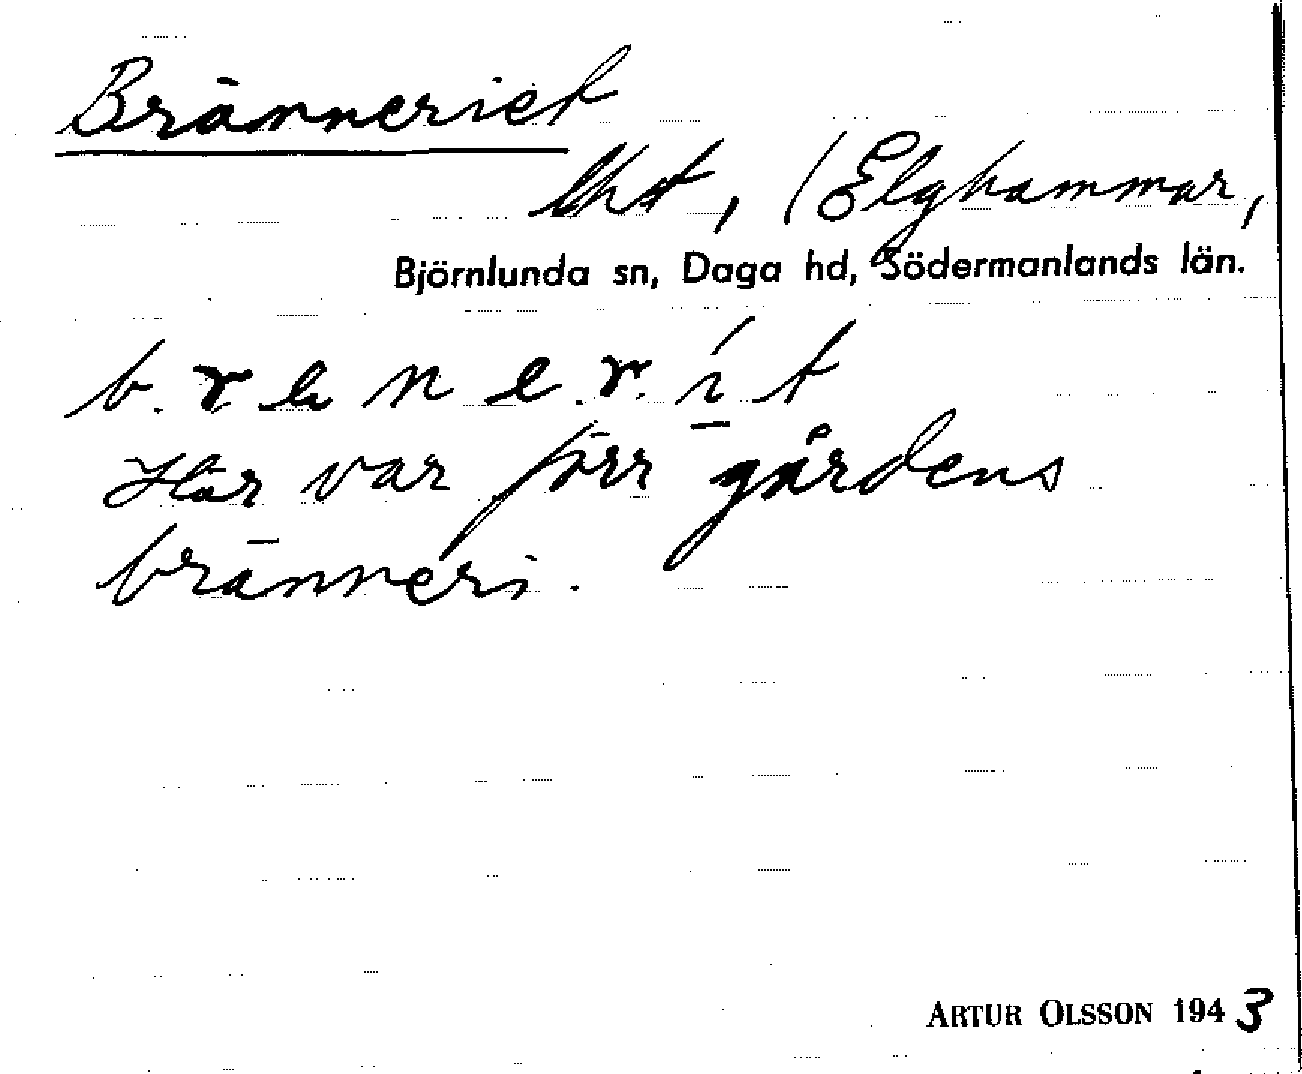 Bränneriet
lht, (Elghammar,
Björnlunda sn, Daga hd, Södermanlands län.
Här var förr gårdens
bränneri.
ARTUR OLSSON 1943